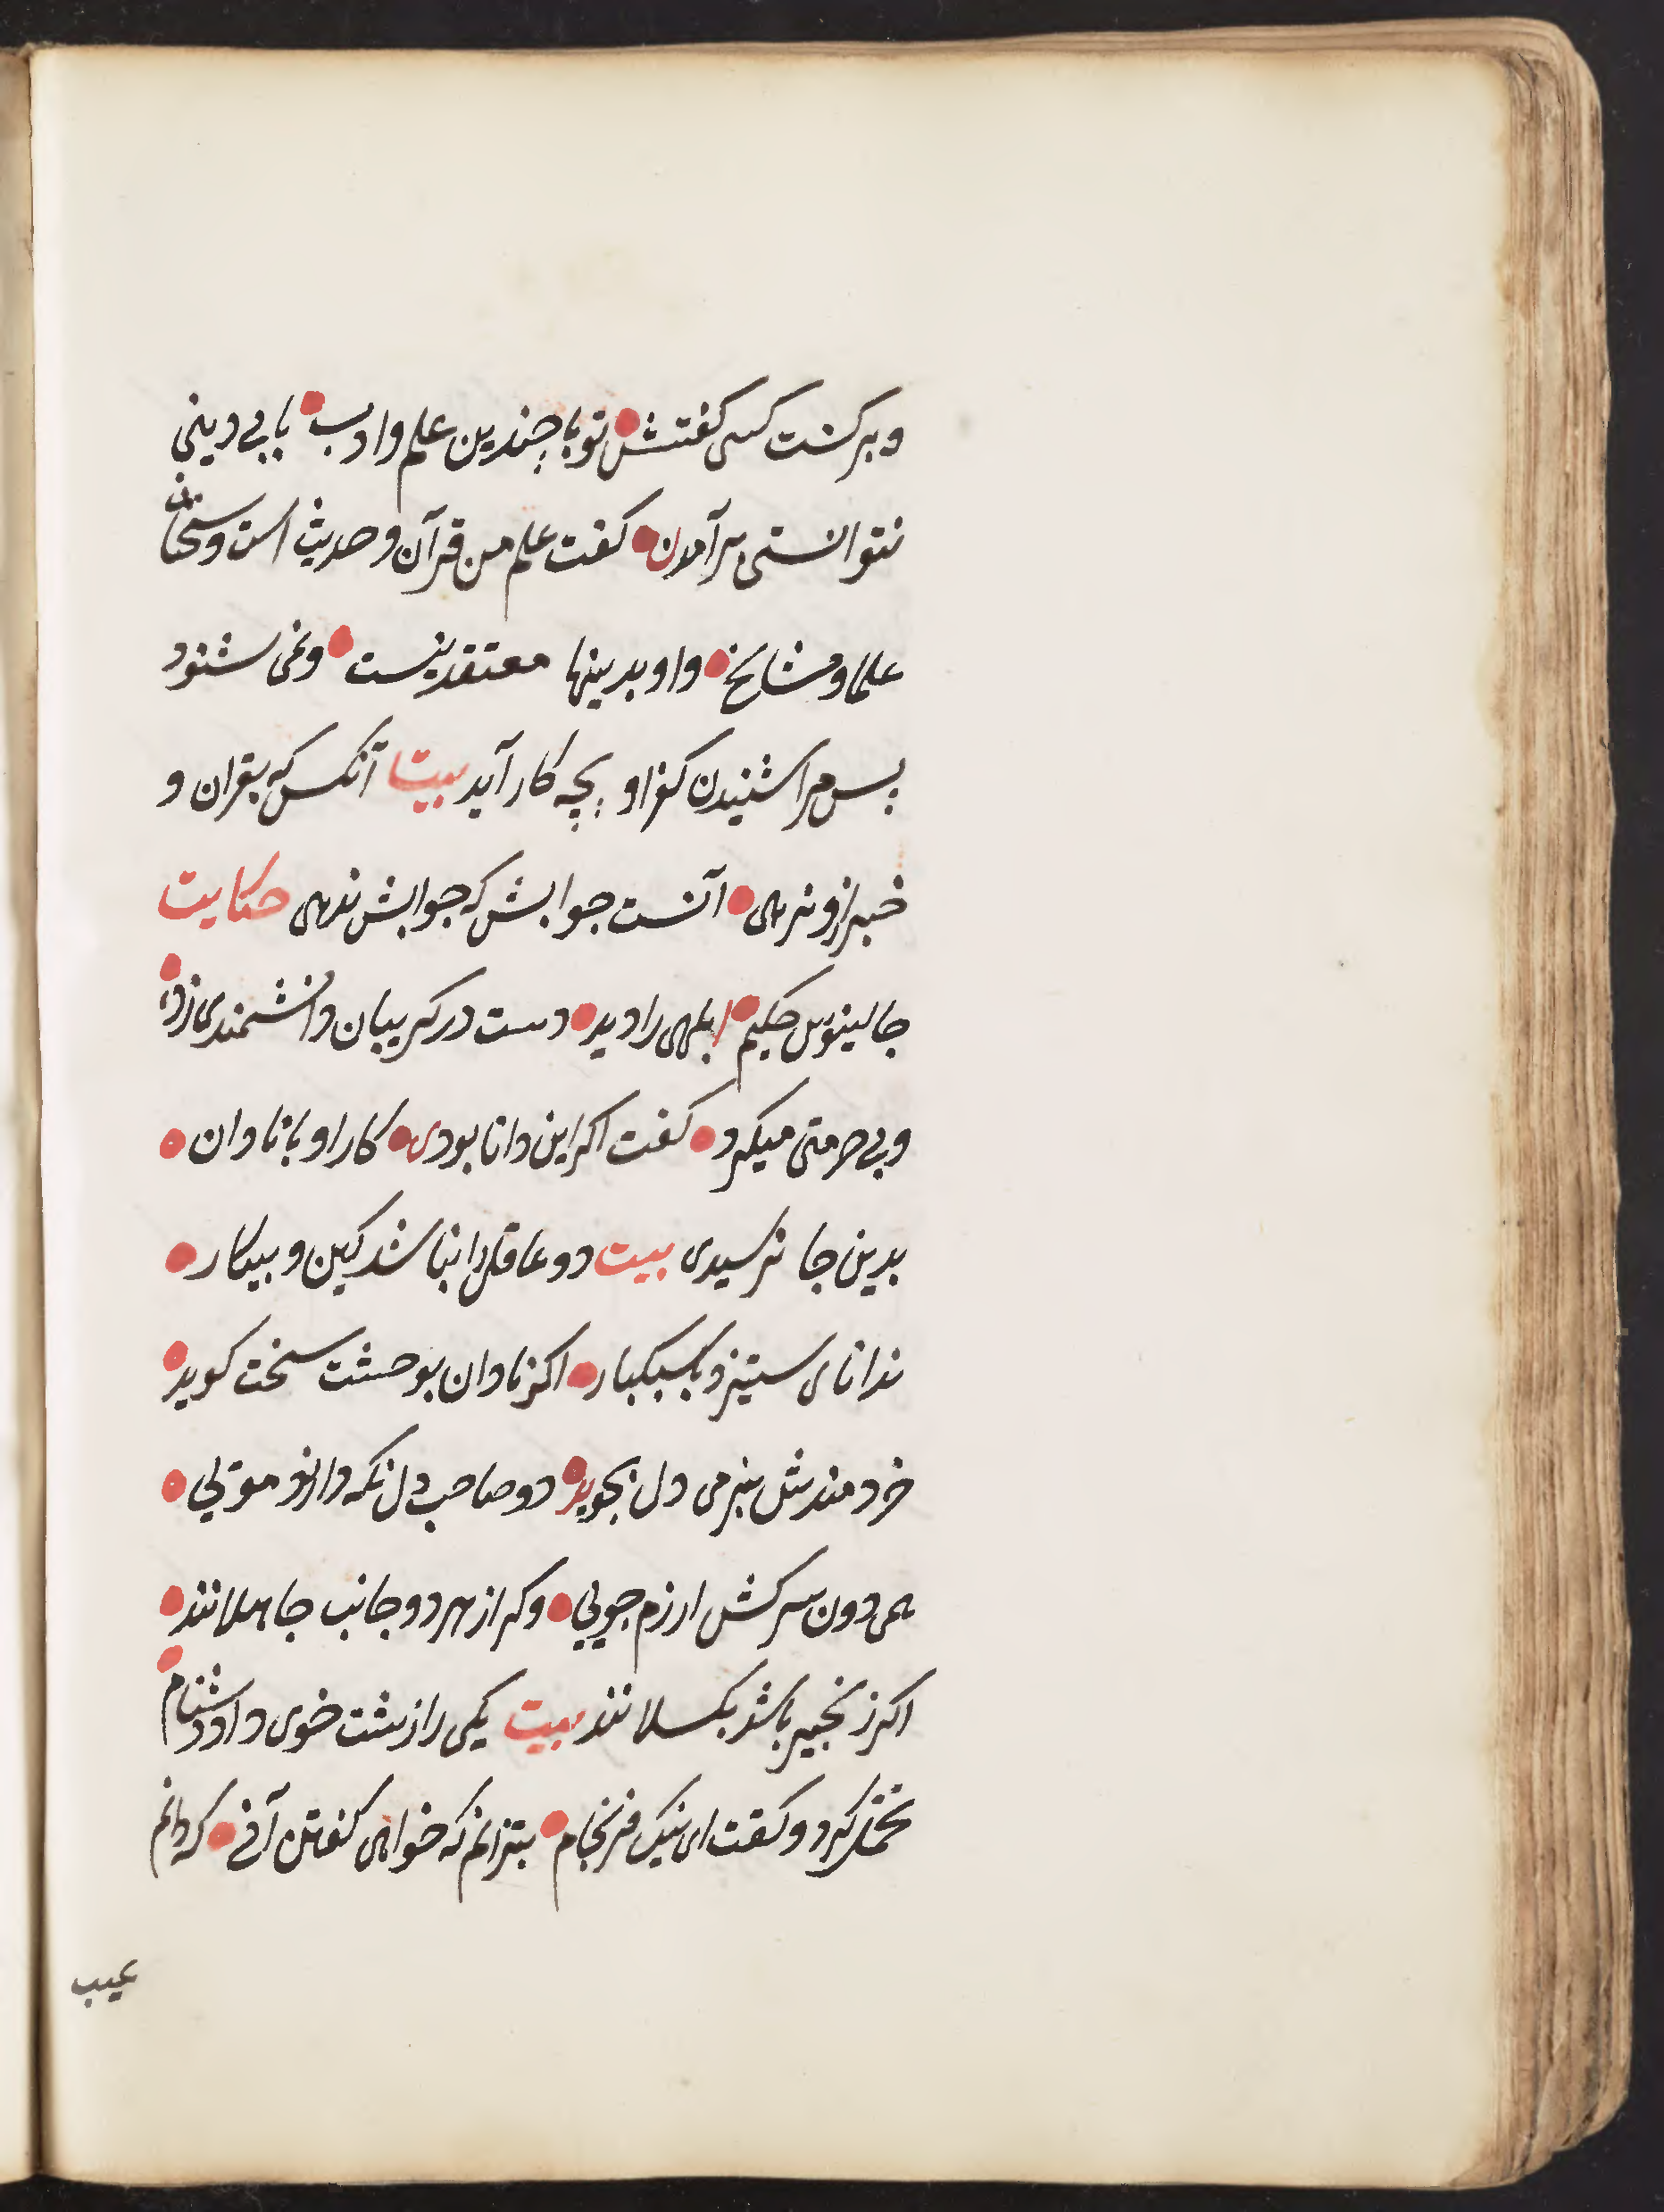 وبرکشت کسی کفتش تو با چندین علم وادب با بی دینی
نتوانستی برآمدن کفت علم من قرآن و حدیث است وسخنان
علما و مشایخ واو بدینها معتقد نیست ونمی شنود
پس مرا شنیدن کفر او بچه کار آید بیت آنکس که بقران و
خبر ازو نرهی آنست جوابش که جوابش ندهی حکایت
جالینوس حکیم ابلهی را دید دست در کریبان دانشمندی زده
وبی حرمتی میکرد کفت اکر این دانا بودی کار او با نادان
بدین جا نرسیدی بیت دو عاقل را نباشد کین و پیکار
ندانای ستیزد با سبکبار اکر نادان بوحشت سخت کوید
خردمندش بنرمی دل بجوید دو صاحب دل نکه دارند مویی
همی دون سرکش ارزم جویی وکر از هر دو جانب جاهلانند
اکر زنجیر باشد بکسلانند بیت یکی را زشت خوی داد دشنام
تحمل کرد و کفت ای نیک فرنجام بتر زانم که خواهی کفتن آنی که دانم
عیب